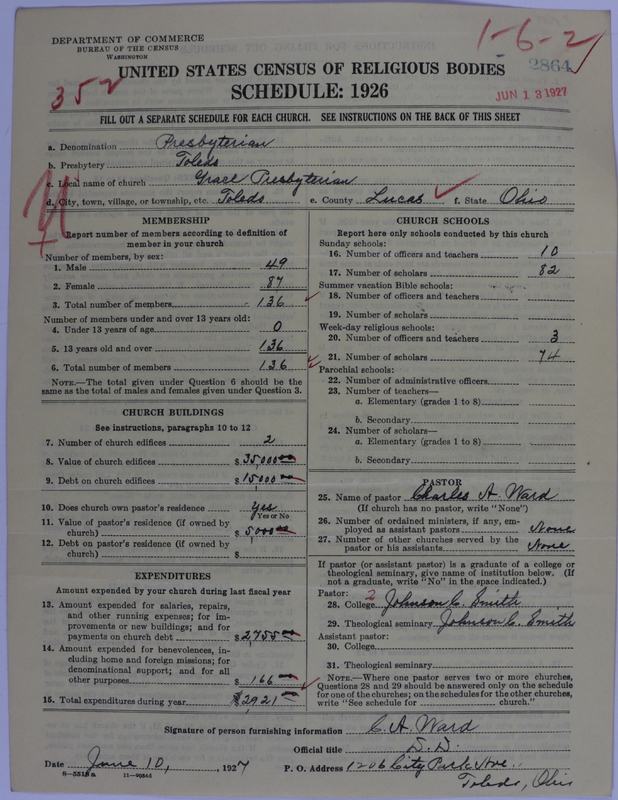 DEPARTMENT OF COMMERCE
BUREAU OF THE CENSUS
WASHINGTON
1-6-2
2864
352
JUN 13 1927
UNITED STATES CENSUS OF RELIGIOUS BODIES
SCHEDULE: 1926
FILL OUT A SEPARATE SCHEDULE FOR EACH CHURCH. SEE INSTRUCTIONS ON THE BACK OF THIS SHEET
a. Denomination Presbyterian
b. Presbytery Toledo
c. Local name of church Grace Presbyterian
d. City, town, village, or township, etc. Toledo e. County Lucas f. State Ohio
MEMBERSHIP
Report number of members according to definition of
member in your church
Number of members, by sex:
1. Male 49
2. Female 87
3. Total number of members 136
Number of members under and over 13 years old:
4. Under 13 years of age 0
5. 13 years old and over 136
6. Total number of members 136
NOTE.—The total given under Question 6 should be
same as the total of males and females given under Question 3.
CHURCH BUILDINGS
See instructions, paragraphs 10 to 12
7. Number of church edifices 2
8. Value of church edifices $ 35,000 00
9. Debt on church edifices $ 15000 00
10. Does church own pastor's residence? Yes
Yes or No
11. Value of pastor's residence (if owned by
church) $ 5000 00
12. Debt on pastor's residence (if owned by
church) $
EXPENDITURES
Amount expended by your church during last fiscal year
13. Amount expended for salaries, repairs,
and other running expenses; for im-
provements or new buildings; and for
payments on church debt $ 2,755 00
14. Amount expended for benevolences, in-
cluding home and foreign missions; for
denominational support; and for all
other purposes $ 166 00
15. Total expenditures during year $ 2921 00
CHURCH SCHOOLS
Report here only schools conducted by this church
Sunday schools:
16. Number of officers and teachers 10
17. Number of scholars 82
Summer vacation Bible schools:
18. Number of officers and teachers
19. Number of scholars
Week-day religious schools:
20. Number of officers and teachers 3
21. Number of scholars 74
Parochial schools:
22. Number of administrative officers
23. Number of teachers—
a. Elementary (grades 1 to 8)
b. Secondary
24. Number of scholars—
a. Elementary (grades 1 to 8)
b. Secondary
PASTOR
25. Name of pastor Charles A. Ward
(If church has no pastor, write "None")
26. Number of ordained ministers, if any, em-
ployed as assistant pastors None
27. Number of other churches served by the
pastor or his assistants None
If pastor (or assistant pastor) is a graduate of a college or
theological seminary, give name of institution below. (If
not a graduate, write "No" in the space indicated.)
Pastor: 2
28. College Johnson C. Smith
29. Theological seminary Johnson C. Smith
Assistant pastor:
30. College
31. Theological seminary
NOTE.—Where one pastor serves two or more churches,
Questions 28 and 29 should be answered only on the schedule
for one of the churches; on the schedules for the other churches,
write "See schedule for church."
Signature of person furnishing information C. A. Ward
Official title D. D.
Date June 10, 1927 P. O. Address 1206 City Park Ave.
8-551a 11-9034d Toledo, Ohio